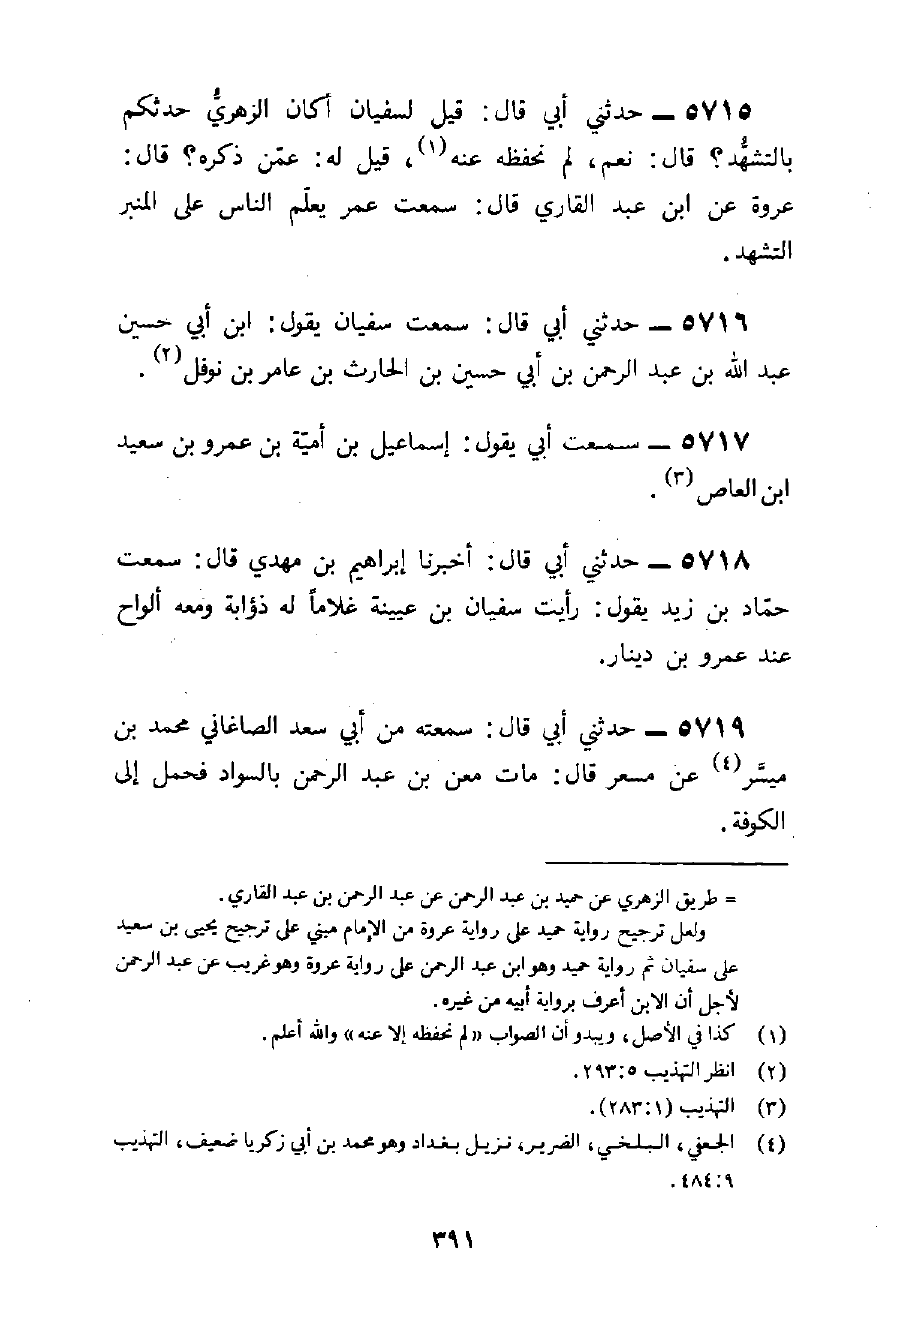 ٥٧١٥ ــ حدثني أبي قال: قيل لسفيان أكان الزهريُّ حدثكم
بالتشهُّد؟ قال: نعم، لم نحفظه عنه(١)، قيل له: عمّن ذكره؟ قال:
عروة عن ابن عبد القاري قال: سمعت عمر يعلّم الناس على المنبر
التشهد.
٥٧١٦ ــ حدثني أبي قال: سمعت سفيان يقول: ابن أبي حسين
عبد الله بن عبد الرحمن بن أبي حسين بن الحارث بن عامر بن نوفل(٢).
٥٧١٧ ــ سمعت أبي يقول: إسماعيل بن أميّة بن عمرو بن سعيد
ابن العاص(٣).
٥٧١٨ ــ حدثني أبي قال: أخبرنا إبراهيم بن مهدي قال: سمعت
حمّاد بن زيد يقول: رأيت سفيان بن عيينة غلاماً له ذؤابة ومعه ألواح
عند عمرو بن دينار.
٥٧١٩ ــ حدثني أبي قال: سمعته من أبي سعد الصاغاني محمد بن
ميسَّر(٤) عن مسعر قال: مات معن بن عبد الرحمن بالسواد فحمل إلى
الكوفة.
= طريق الزهري عن حميد بن عبد الرحمن عن عبد الرحمن بن عبد القاري.
ولعل ترجيح رواية حميد على رواية عروة من الإمام مبني على ترجيح يحيى بن سعيد
على سفيان ثم رواية حميد وهو ابن عبد الرحمن على رواية عروة وهو غريب عن عبد الرحمن
لأجل أن الابن أعرف برواية أبيه من غيره.
(١) كذا في الأصل، ويبدو أن الصواب «لم نحفظه إلا عنه» والله أعلم.
(٢) انظر التهذيب ٥:٢٩٣.
(٣) التهذيب (١:٢٨٣).
(٤) الجعفي، البلخي، الضرير، نزيل بغداد وهو محمد بن أبي زكريا ضعيف، التهذيب
٩:٤٨٤.
٣٩١